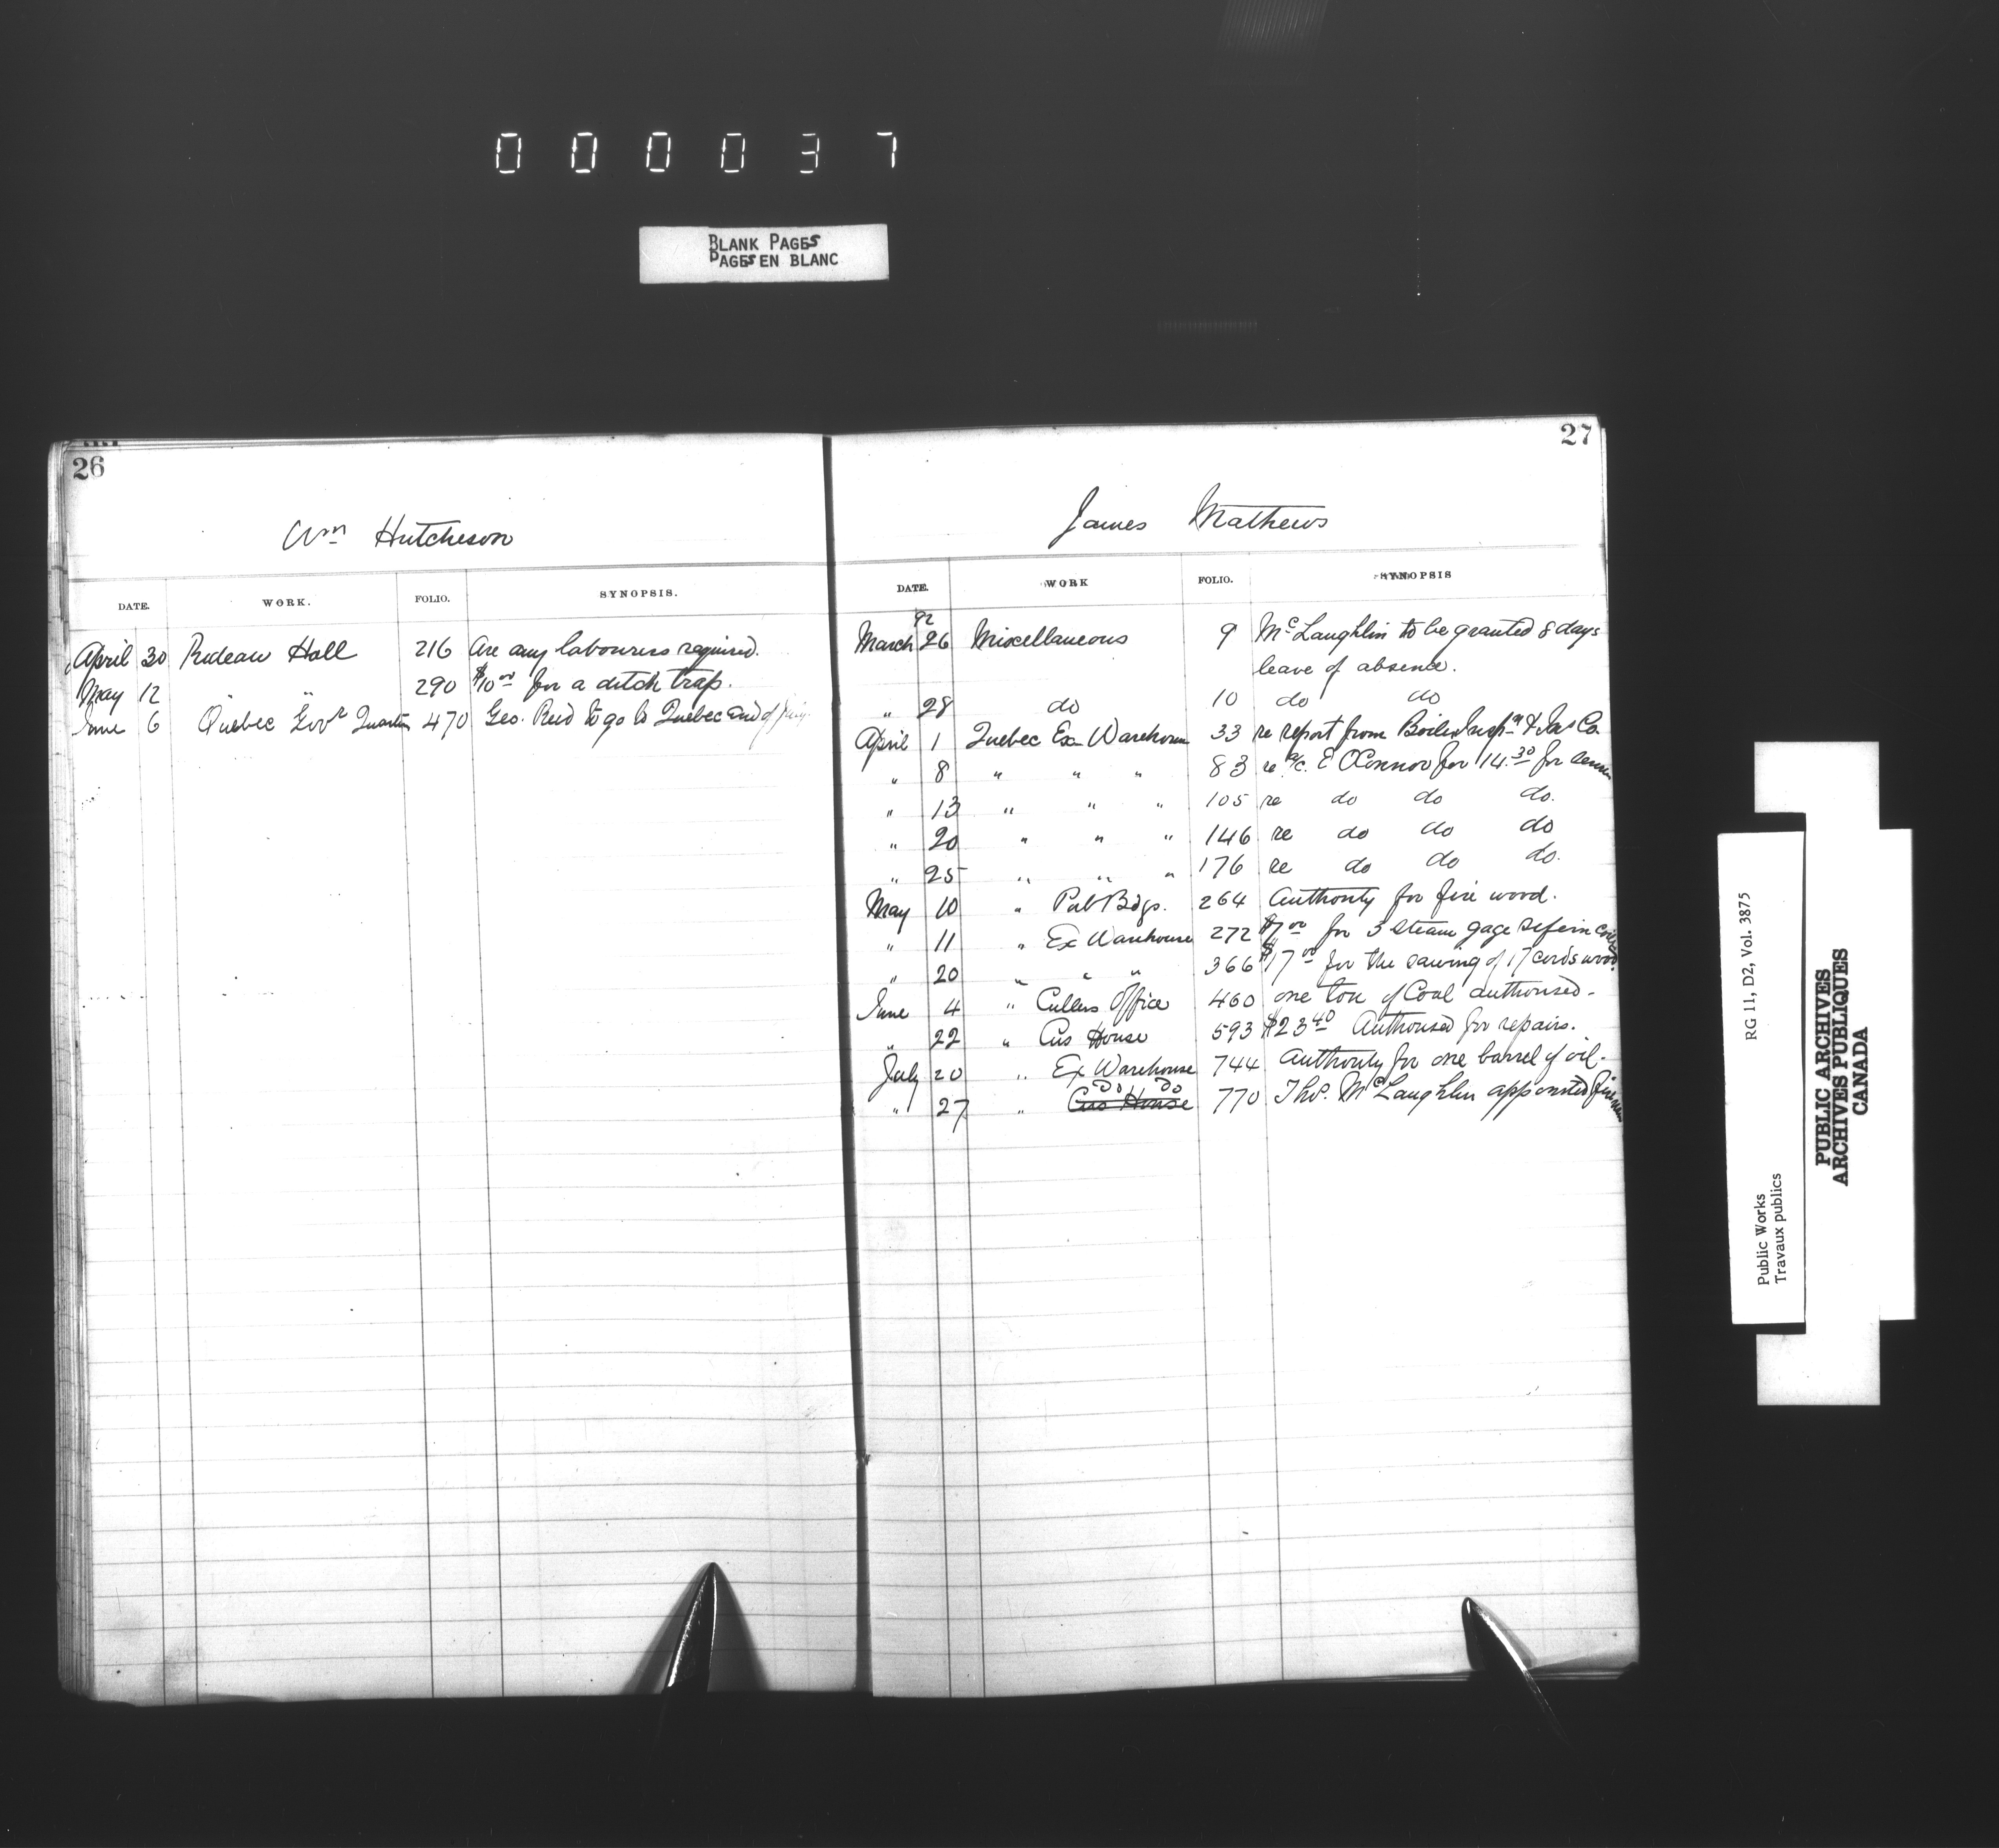 000037
BLANK PAGES
PAGES EN BLANC
26
Wm Hutcheson
DATE. WORK. FOLIO. SYNOPSIS.
April 30 Rideau Hall 216 Are any labourers required.
May 12 " " 290 $10.00 for a ditch trap.
June 6 Quebec Govr Quarters 470 Geo. Reid to go to Quebec end of
27
James Mathews
DATE. WORK FOLIO. SYNOPSIS
92
March 26 Miscellaneous 9 McLaughlin to be granted 8 days
leave of absence.
" 28 do 10 do do
April 1 Quebec Ex Warehouse 33 re report from Boiler Inspn & Ins Co.
" 8 " " " 83 re a/c. E OConnor for 14.30 for
" 13 " " " 105 re do do do.
" 20 " " " 146 re do do do
" 25 " " " 176 re do do do.
May 10 " Pub Bdgs. 264 Authority for fire wood.
" 11 " Ex Warehouse 272 $7.00 for 3 steam gage
" 20 " " " 366 $17.00 for the sawing of 17 cords wood
June 4 " Cullers Office 460 one ton of Coal authorised.
" 22 " Cus House 593 $23.40 Authorised for repairs.
July 20 " Ex Warehouse 744 Authority for one barrel of oil.
Do Do
" 27 " Cus House 770 Thos. McLaughlin appointed fireman
RG 11, D2, Vol. 3875
Public Works
Travaux publics
PUBLIC ARCHIVES
ARCHIVES PUBLIQUES
CANADA